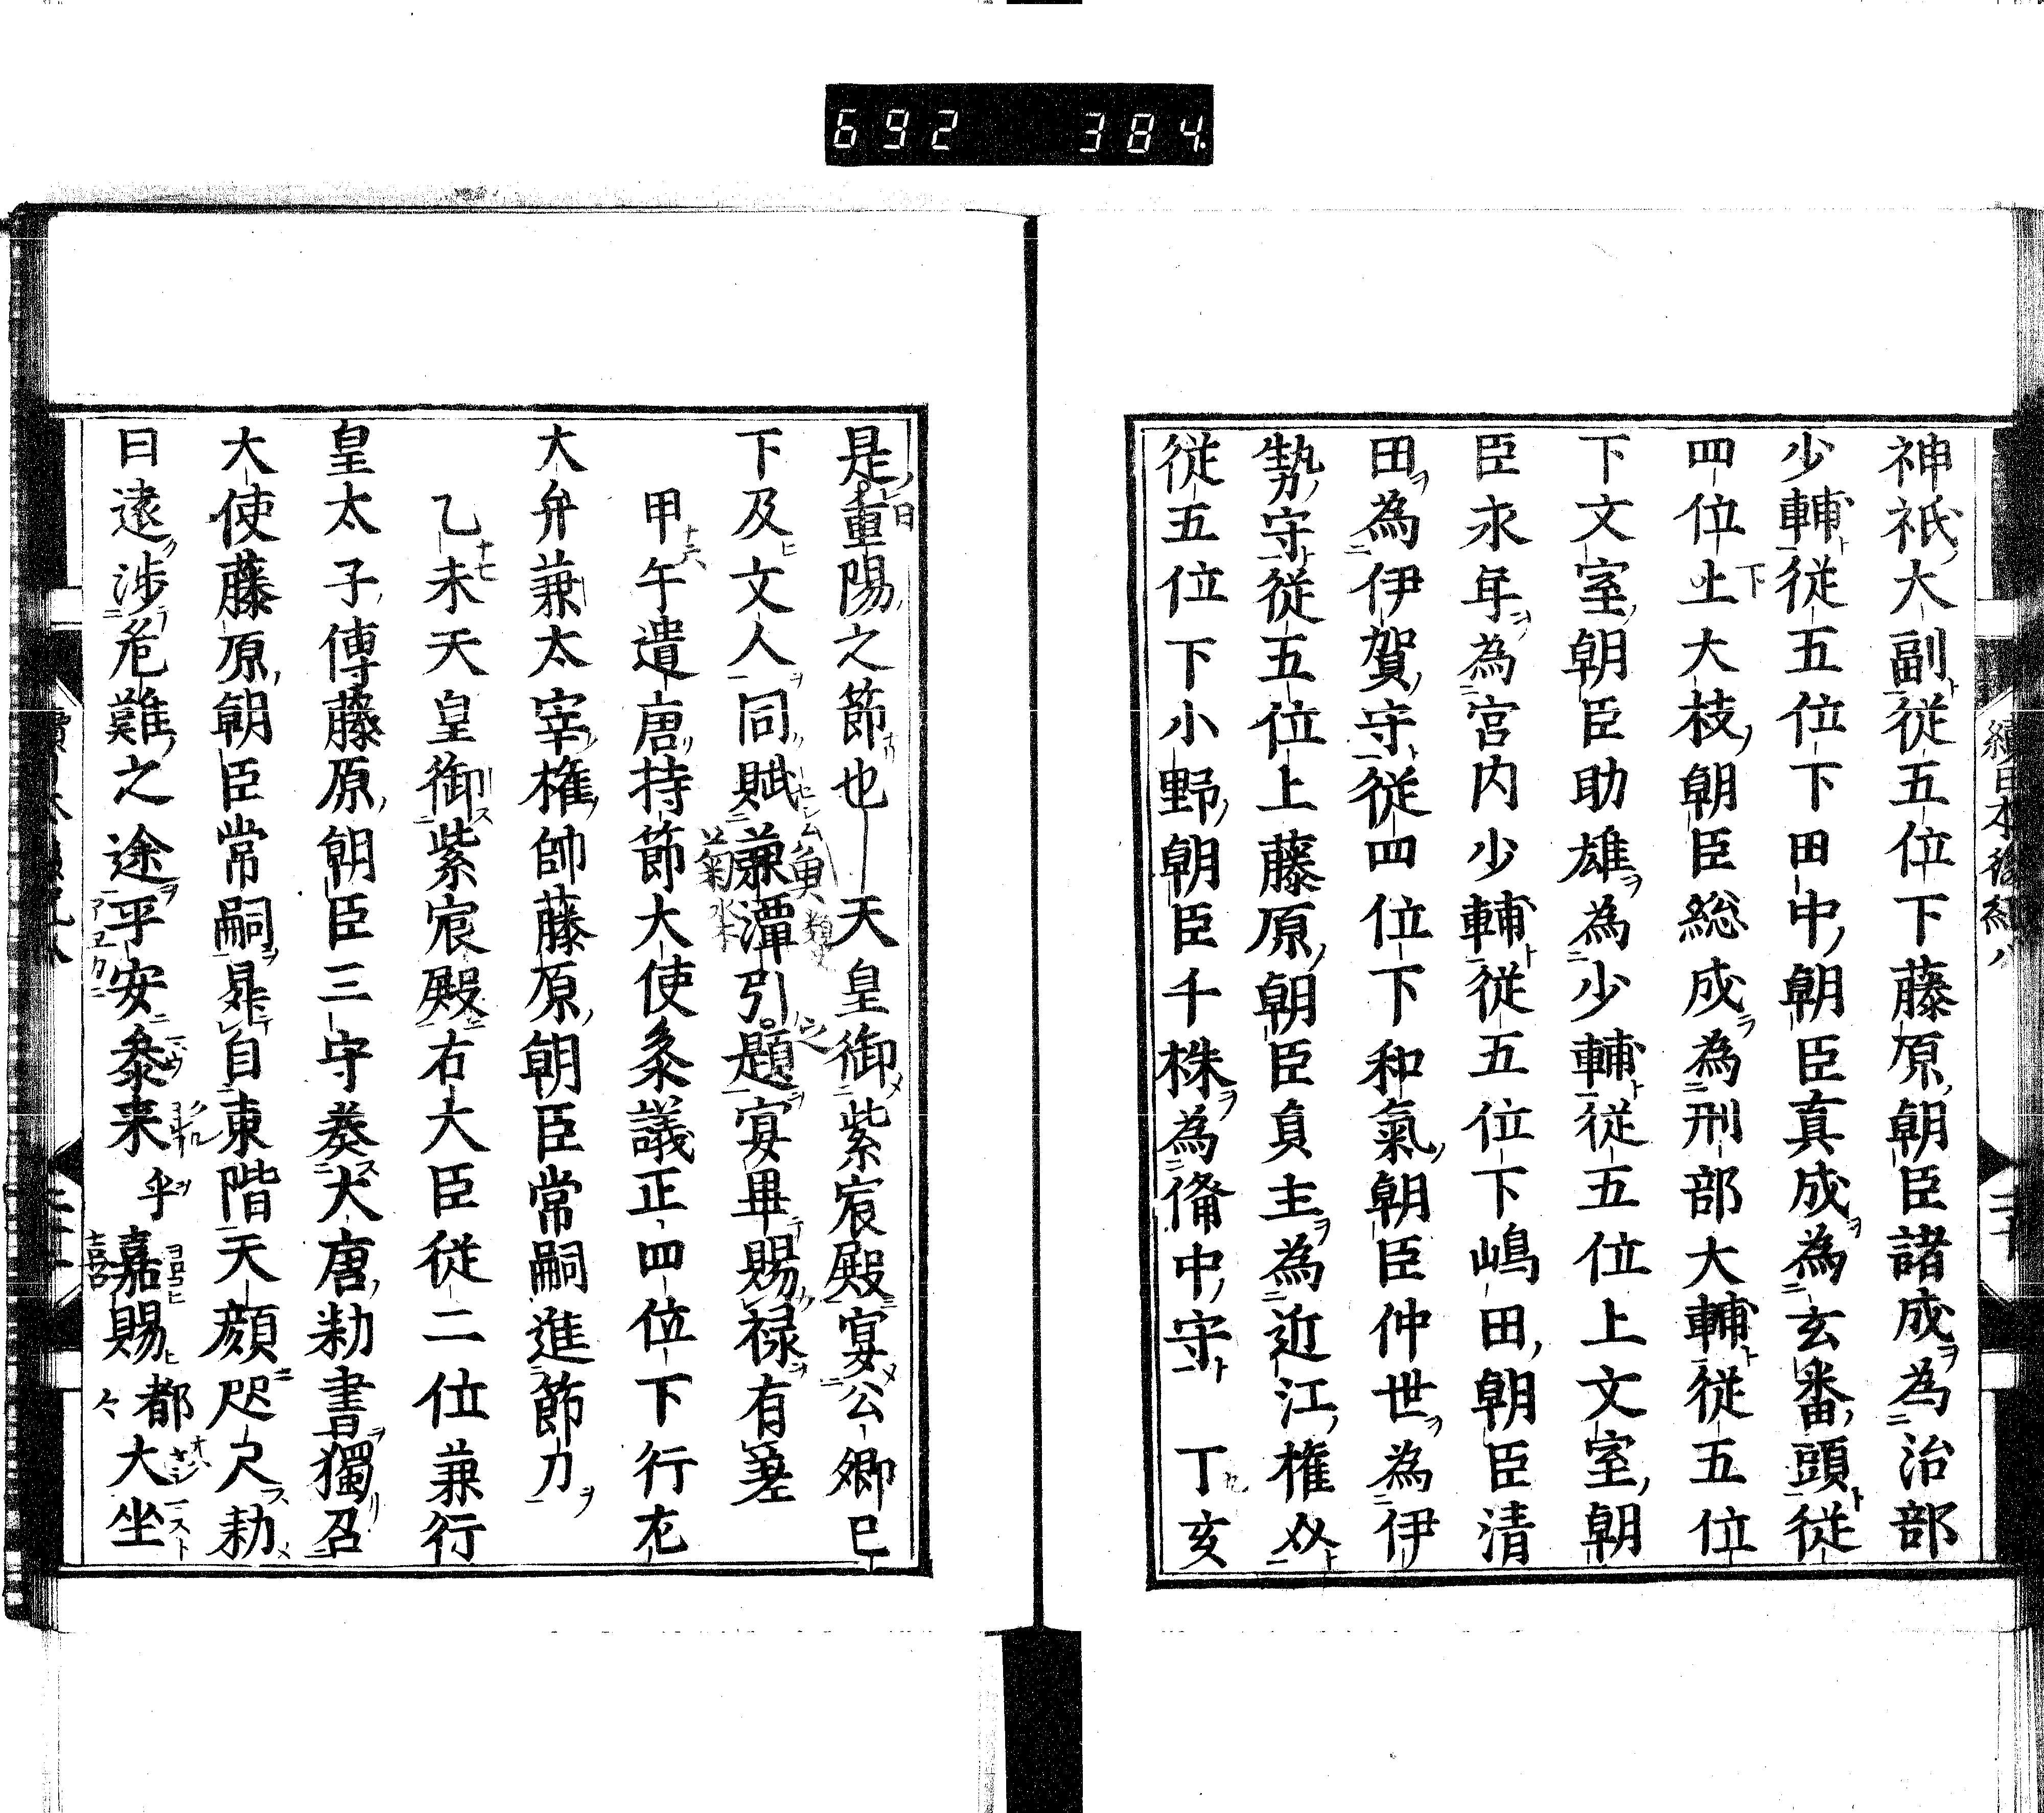 692 384
神祇大副從五位下藤原朝臣諸成為治部
少輔從五位下田中朝臣真成為玄番頭從
四位上大枝朝臣総成為刑部大輔從五位
下文室朝臣助雄為少輔從五位上文室朝
臣永年為宮内少輔從五位下嶋田朝臣清
田為伊賀守從四位下和氣朝臣仲世為伊
勢守從五位上藤原朝臣貞主為近江權介
從五位下小野朝臣千株為俻中守 丁亥
是重陽之節也 天皇御紫宸殿宴公卿已
下及文人同賦兼潭引題宴畢賜禄有差
甲午遣唐持節大使叅議正四位下行左
大弁兼太宰權帥藤原朝臣常嗣進節刀
乙未天皇御紫宸殿右大臣從二位兼行
皇太子傳藤原朝臣三守奏大唐勅書獨召
大使藤原朝臣常嗣昇自東階天顔咫尺勅
曰遠涉危難之途平安叅来乎嘉賜都大坐